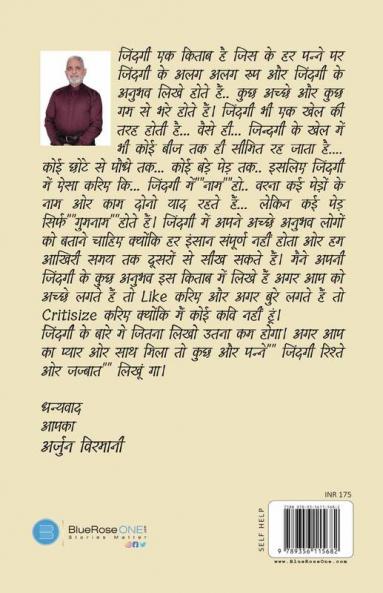 जिंदगी एक किताब है जिस के हर पन्ने पर
जिंदगी के अलग अलग रूप और जिंदगी के
अनुभव लिखे होते हैं.. कुछ अच्छे और कुछ
गम से भरे होते हैं। जिंदगी भी एक खेल की
तरह होती है... वैसे ही... जिन्दगी के खेल में
भी कोई बीज तक ही सीमित रह जाता है....
कोई छोटे से पौधे तक... कोई बड़े पेड़ तक.. इसलिए जिंदगी
में ऐसा करिए कि... जिंदगी में""नाम""हो.. वरना कई पेड़ों के
नाम ओर काम दोनो याद रहते हैं... लेकिन कई पेड़
सिर्फ""गुमनाम""होते हैं। जिंदगी में अपने अच्छे अनुभव लोगों
को बताने चाहिए क्योंकि हर इंसान संपूर्ण नहीं होता ओर हम
आखिरी समय तक दूसरों से सीख सकते हैं। मैने अपनी
जिंदगी के कुछ अनुभव इस किताब में लिखे हैं अगर आप को
अच्छे लगते हैं तो Like करिए और अगर बुरे लगते हैं तो
Critisize करिए क्योंकि मैं कोई कवि नहीं हूं।
जिंदगी के बारे मे जितना लिखो उतना कम होगा। अगर आप
का प्यार ओर साथ मिला तो कुछ और पन्ने"" जिंदगी रिश्ते
ओर जज्बात"" लिखूं गा।
धन्यवाद
आपका
अर्जुन विरमानी
BlueRose ONE
Stories Matter
SELF HELP
INR 175
9 789356 115682
www.BlueRoseOne.com